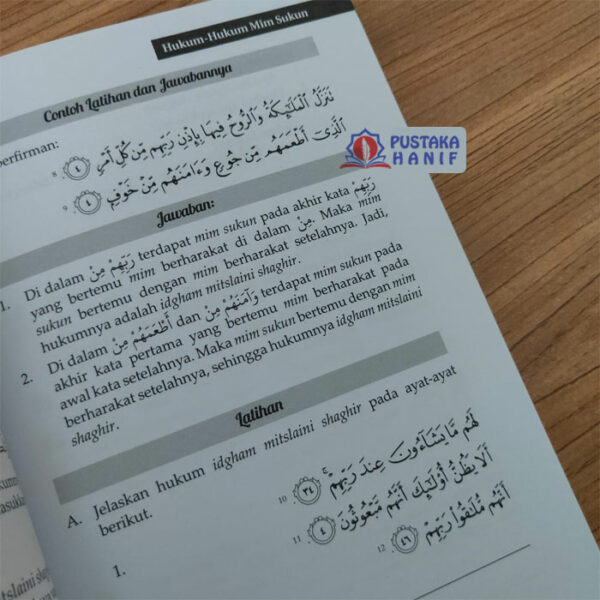 Hukum-Hukum Mim Sukun
Contoh Latihan dan Jawabannya
berfirman:
تَنَزَّلُ الْمَلَٰٓئِكَةُ وَالرُّوحُ فِيهَا بِإِذْنِ رَبِّهِم مِّن كُلِّ أَمْرٍ ﴿٤﴾ 8
الَّذِىٓ أَطْعَمَهُم مِّن جُوعٍ وَءَامَنَهُم مِّنْ خَوْفٍ ﴿٤﴾ 9
PUSTAKA
HANIF
Jawaban:
1. Di dalam رَبِّهِمْ مِنْ terdapat mim sukun pada akhir kata رَبِّهِمْ
yang bertemu mim berharakat di dalam مِنْ. Maka mim
sukun bertemu dengan mim berharakat setelahnya. Jadi,
hukumnya adalah idgham mitslaini shaghir.
2. Di dalam أَطْعَمَهُمْ مِنْ dan وَآمَنَهُمْ مِنْ terdapat mim sukun pada
akhir kata pertama yang bertemu mim berharakat pada
awal kata setelahnya. Maka mim sukun bertemu dengan mim
berharakat setelahnya, sehingga hukumnya idgham mitslaini
shaghir.
Latihan
A. Jelaskan hukum idgham mitslaini shaghir pada ayat-ayat
berikut.
1.
لَهُم مَّا يَشَآءُونَ عِندَ رَبِّهِمْ ۚ ﴿٣٤﴾ 10
أَلَا يَظُنُّ أُو۟لَٰٓئِكَ أَنَّهُم مَّبْعُوثُونَ ﴿٤﴾ 11
أَنَّهُم مُّلَٰقُوا۟ رَبِّهِمْ ﴿٤٦﴾ 12